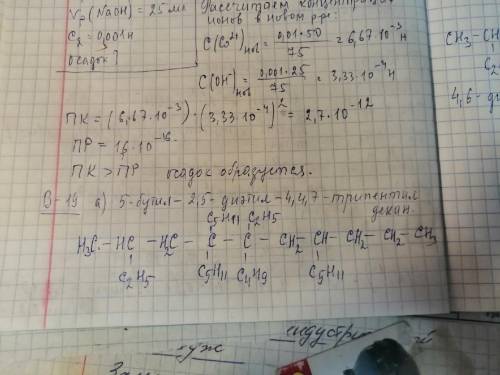 Vр (NaOH) = 25 мл
C₂ = 0,001н
осадок?
Рассчитаем концентрации
ионов в новом р-ре:
C(Co²⁺)нов = 0,01·50 / 75 = 6,67·10⁻³ н
C(OH⁻)нов = 0,001·25 / 75 = 3,33·10⁻⁴ н
ПК = (6,67·10⁻³)·(3,33·10⁻⁴)² = 2,7·10⁻¹²
ПР = 16·10⁻¹⁶
ПК > ПР осадок образуется.
В-19 а) 5-бутил-2,5-диэтил-4,4,7-трипентил
декан.
C₅H₁₁ C₂H₅
H₃C - HC - H₂C - C - C - CH₂ - CH - CH₂ - CH₂ - CH₃
C₂H₅ C₅H₁₁ C₄H₉ C₅H₁₁
CH₃ - CH
4,6-ди
индустри